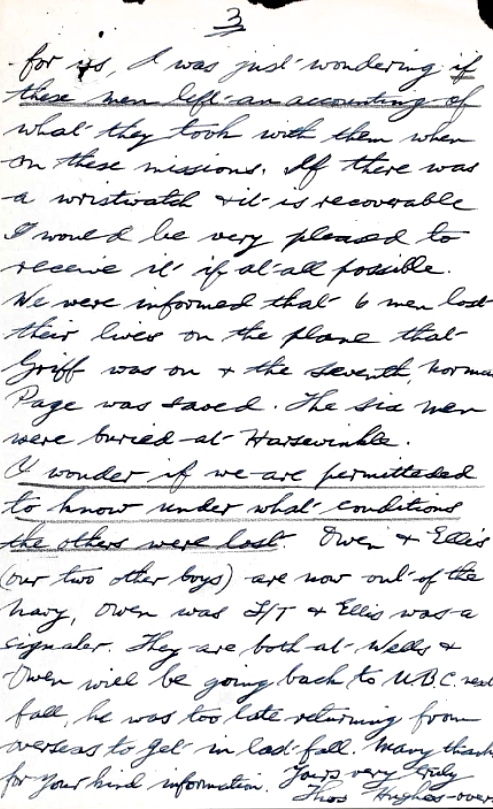 3
for us, I was just wondering if
these men left an accounting of
what they took with them when
on these missions. If there was
a wristwatch & it is recoverable
I would be very pleased to
receive it if at all possible.
We were informed that 6 men lost
their lives on the plane that
Griff was on & the seventh, Norman
Page was saved. The six men
were buried at Harsewinkle.
I wonder if we are permitteded
to know under what conditions
the others were lost. Owen & Ellis
(our two other boys) are now out of the
Navy, Owen was S/T & Ellis was a
signaler. They are both at Wells &
Owen will be going back to U.B.C. next
fall, he was too late returning from
overseas to get in last fall. Many thanks
for your kind information. Yours very truly
Thos Hughes-over